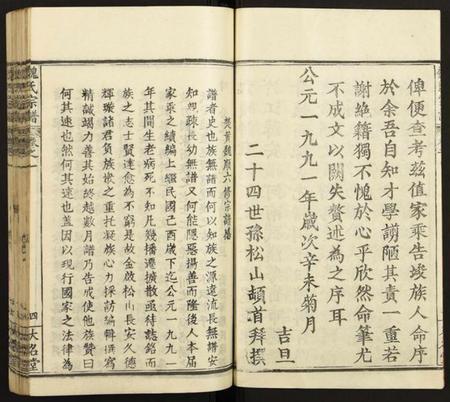 俾便查考茲值家乘告竣族人命序
於余吾自知才學謭陋其責一重若
謝絶籍獨不愧於心乎欣然命筆尤
不成文以關失贅述為之序耳
公元一九九一年歲次辛未菊月
吉旦
二十四世孫松山頓首拜撰
魏氏宗譜
卷之
四
大名堂
譜者史也族無譜而何以知族之源遠流長無譜安
知四疎長幼無譜又何能隱惡揚善而隆後人本屆
家乘之續編上繼民國己酉歲下迄公元一九九一
年其間生老病死不知凡幾播遷擴散亟待誌銘而
族之志士賢達愈為不窮是故金啟松山長安久德
輝璇諸君負族慘之重托疑族心力採訪編輯撰寫
精誠竭力善其始終越數月譜乃告成使他族贊曰
何其速也然何其速也蓋因以現行國家之法律為